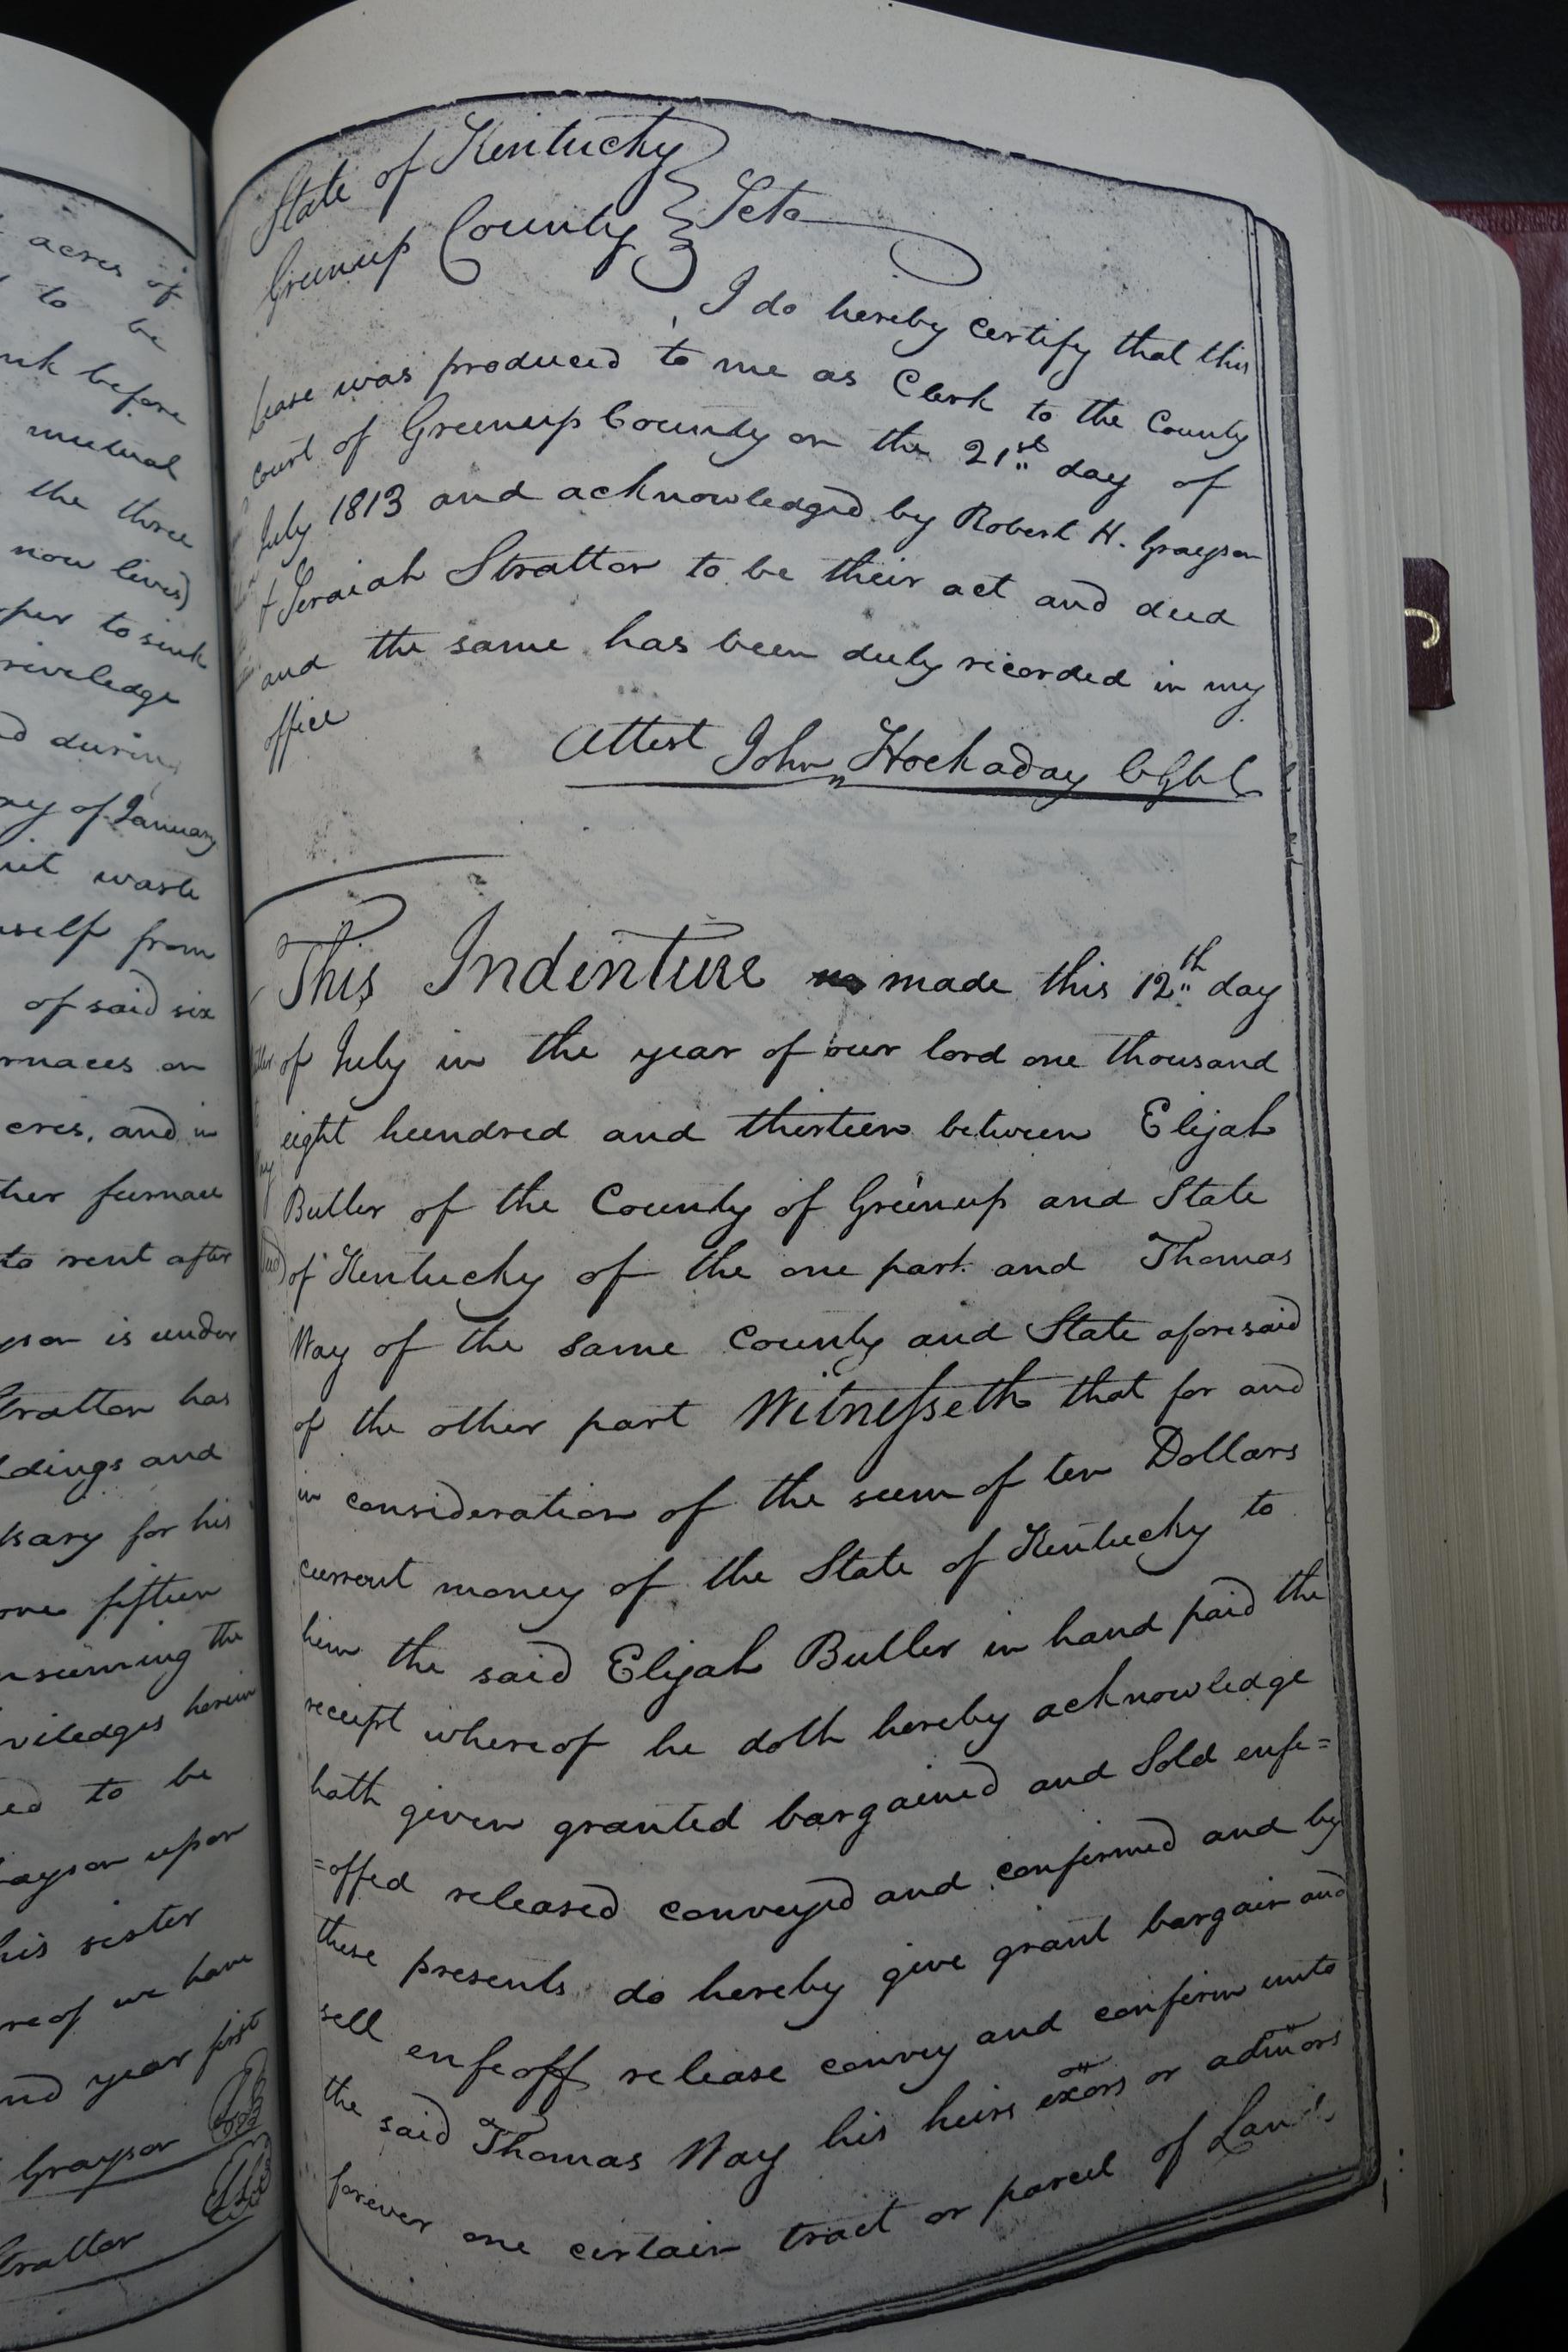 acres of
to be
before
mutual
the three
now lives)
to sink
priveledge
during
of January
waste
from
of said six
on
and in
furnace
to rent after
is under
Stratton has
and
for his
fifteen
the
herein
to be
upon
his sister
we have
year first
Grayson
Stratton
State of Kentucky
Greenup County } Sct
I do hereby certify that this
lease was produced to me as Clerk to the County
court of Greenup County on the 21st day of
July 1813 and acknowledged by Robert H. Grayson
& Seraiah Stratton to be their act and deed
and the same has been duly recorded in my
office
Attest John Hockaday
This Indenture made this 12th day
of July in the year of our lord one thousand
eight hundred and thirteen between Elijah
Butler of the County of Greenup and State
of Kentucky of the one part and Thomas
Way of the same County and State aforesaid
of the other part Witnesseth that for and
in consideration of the sum of ten Dollars
current money of the State of Kentucky to
him the said Elijah Butler in hand paid the
receipt whereof he doth hereby acknowledge
hath given granted bargained and Sold enfe=
=offed released conveyed and confirmed and by
these presents do hereby give grant bargain and
sell enfeoff release convey and confirm unto
the said Thomas Way his heirs exors or admors
forever one certain tract or parcel of Land